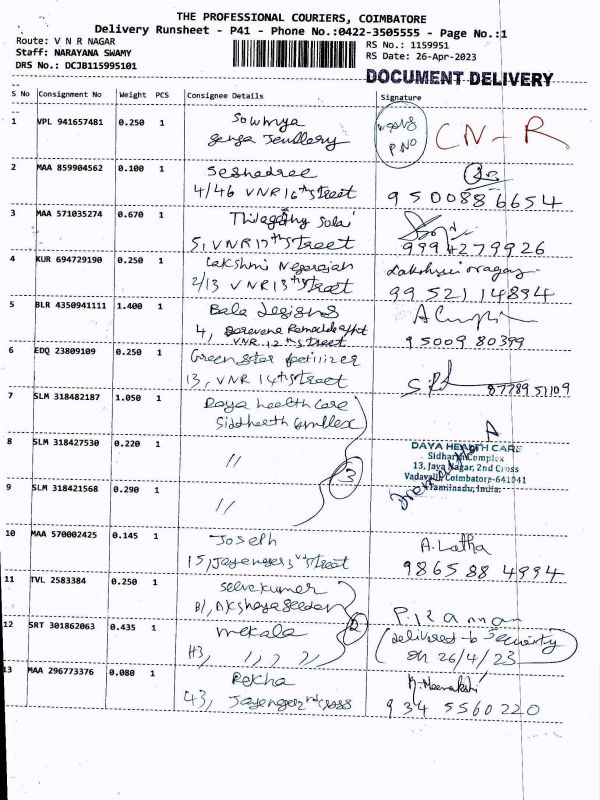 THE PROFESSIONAL COURIERS, COIMBATORE
Delivery Runsheet - P41 - Phone No.:0422-3505555 - Page No.:1
Route: V N R NAGAR
Staff: NARAYANA SWAMY
DRS No.: DCJB115995101
RS No.: 1159951
RS Date: 26-Apr-2023
DOCUMENT DELIVERY
S No Consignment No Weight PCS Consignee Details Signature
1 VPL 941657481 0.250 1 Sowmya
Jewllery
P NO
CN-R
2 MAA 859904562 0.100 1 Seshadree
4/46 VNR 16th Street
95008 86654
3 MAA 571035274 0.670 1
5, VNR 17th Street
9994279926
4 KUR 694729190 0.250 1 Lakshmi Negarajah
2/13 VNR 13th Street
99 521 14894
5 BLR 4350941111 1.400 1 Bala Designs
4,
VNR 12th Street
95009 80399
6 EDQ 23809109 0.250 1 Green Star fertilizer
13, VNR 14th Street
87789 51109
7 SLM 318482187 1.050 1 Daya health Care
Siddharth Complex
8 SLM 318427530 0.220 1 //
3
DAYA HEALTH CARE
Sidharth Complex
13, Jaya Nagar, 2nd Cross
Vadavalli, Coimbatore-641041
Tamilnadu, India.
9 SLM 318421568 0.290 1 //
10 MAA 570002425 0.145 1 Joseph
A. Latha
98658 84994
11 TVL 2583384 0.250 1 Selvekumer
12 SRT 301862063 0.435 1 mekala
H3, // // //
2
(delivered to Security
on 26/4/23)
13 MAA 296773376 0.080 1 Rekha
N. Meenakshi
934 5560220